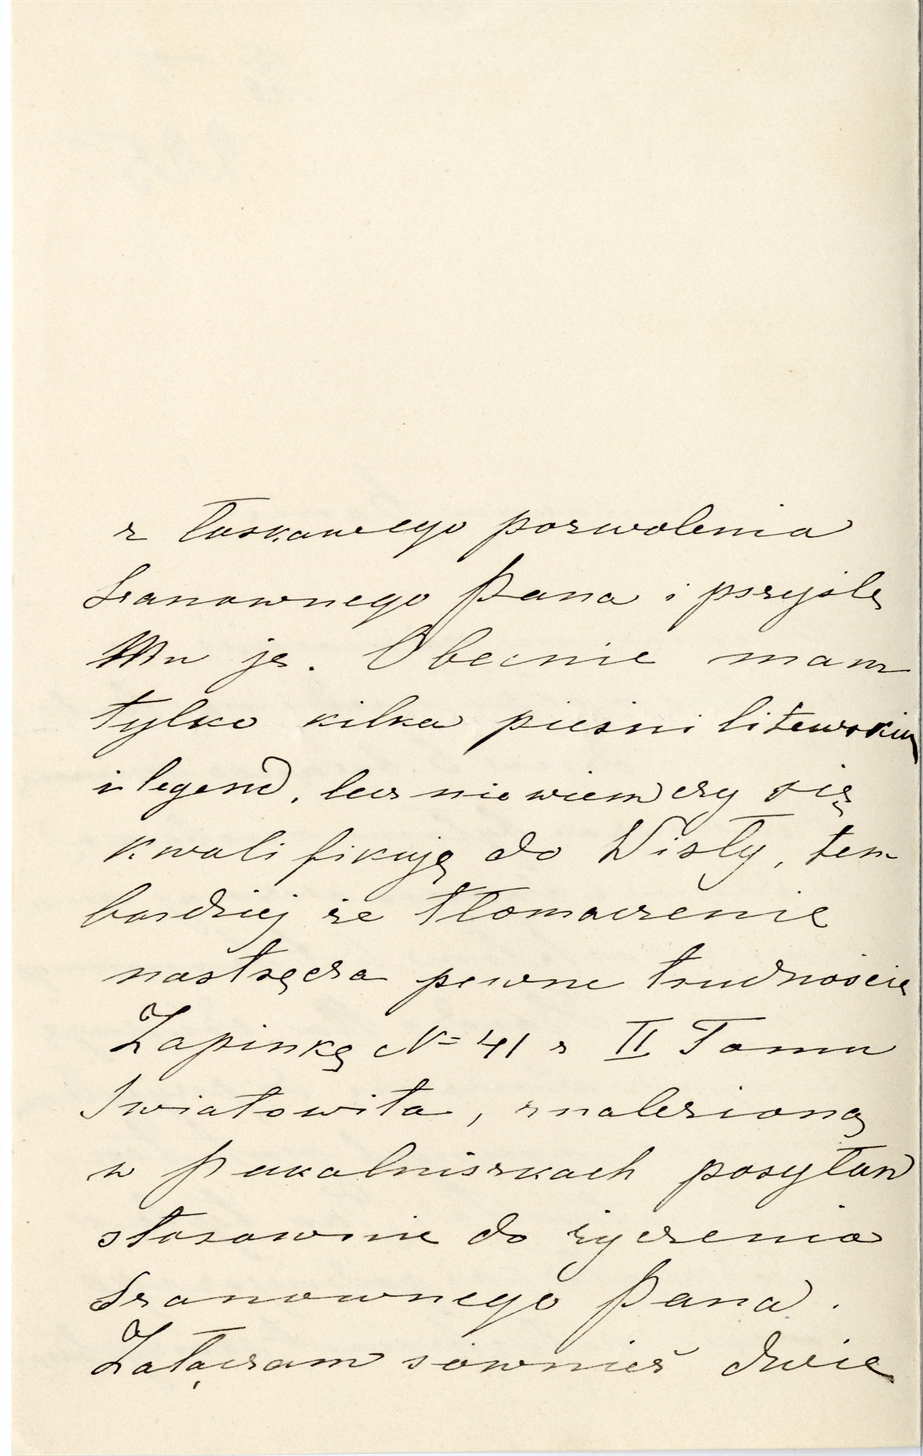 z łaskawego pozwolenia
Szanownego Pana i przyślę
Mu je. Obecnie mam
tylko kilka pieśni litewskich
i legend, lecz nie wiem czy się
kwalifikują do Wisły, tem
bardziej że tłomaczenie
nastręcza pewne trudności
Zapinkę № 41 z II Tomu
Swiatowita, znalezioną
w Pakalniszkach posyłam
stosownie do życzenia
Szanownego Pana.
Załączam również dwie